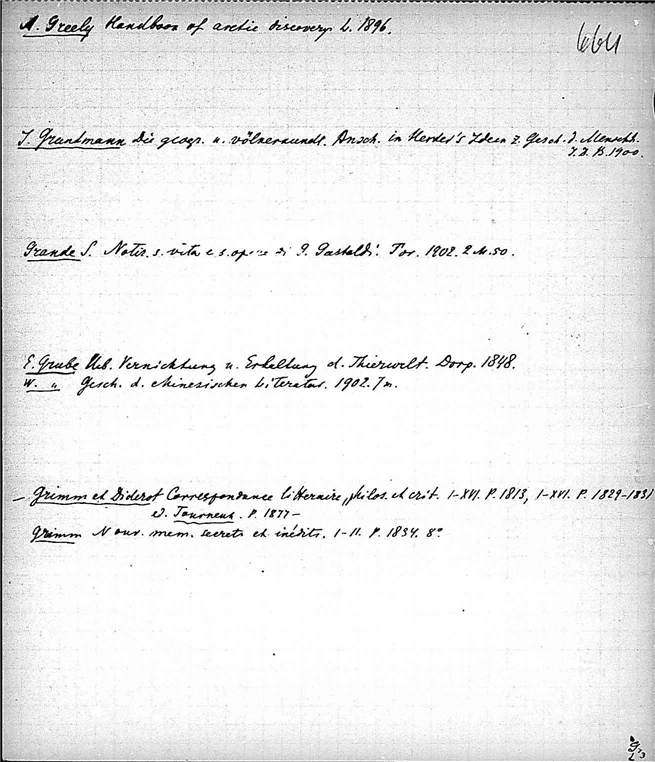 A. Greely Handbook of arctic discovery. L. 1896.
664
J. Grundmann Die geogr. u. völkerkundl. Ansch. in Herder's Ideen z. Gesch. d. Menschh.
J. D. B. 1900.
Grande S. Notiz. s. vita e s. opere di G. Gastaldi. Tor. 1902. 2 M. 50.
E. Grube Ueb. Vernichtung u. Erhaltung d. Thierwelt. Dorp. 1848.
W. " Gesch. d. chinesischen Literatur. 1902. 7 M.
— Grimm et Diderot Correspondance littéraire, philos. et crit. I-XVI. P. 1813, I-XVI. P. 1829-1831
ed. Tourneux. P. 1877—
Grimm Nouv. mem. secrets et inédits. I-II. P. 1834. 8°